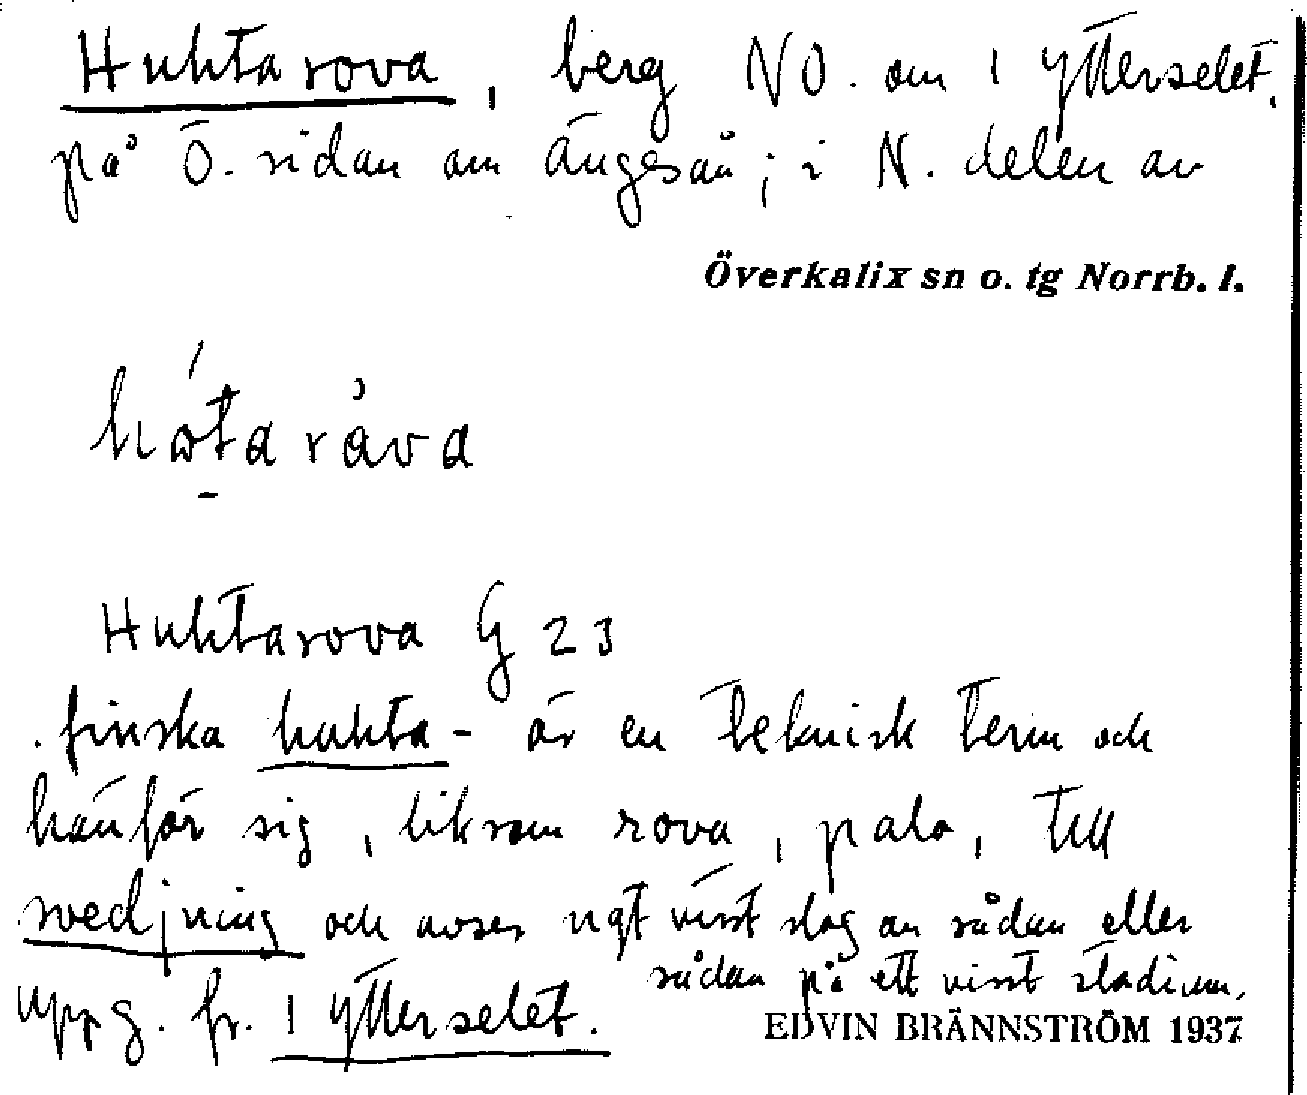 Huhtarova, berg NO. om 1 Ytterselet,
på Ö. sidan om Ängesån; i N. delen av
Överkalix sn o. tg Norrb. l.
hωta råva
Huhtarova G 23
finska huhta- är en teknisk term och
hänför sig, liksom rova, palo, till
svedjning och avser ngt visst slag av sådan eller
sådan på ett visst stadium.
uppg. fr. 1 Ytterselet.
EDVIN BRÄNNSTRÖM 1937